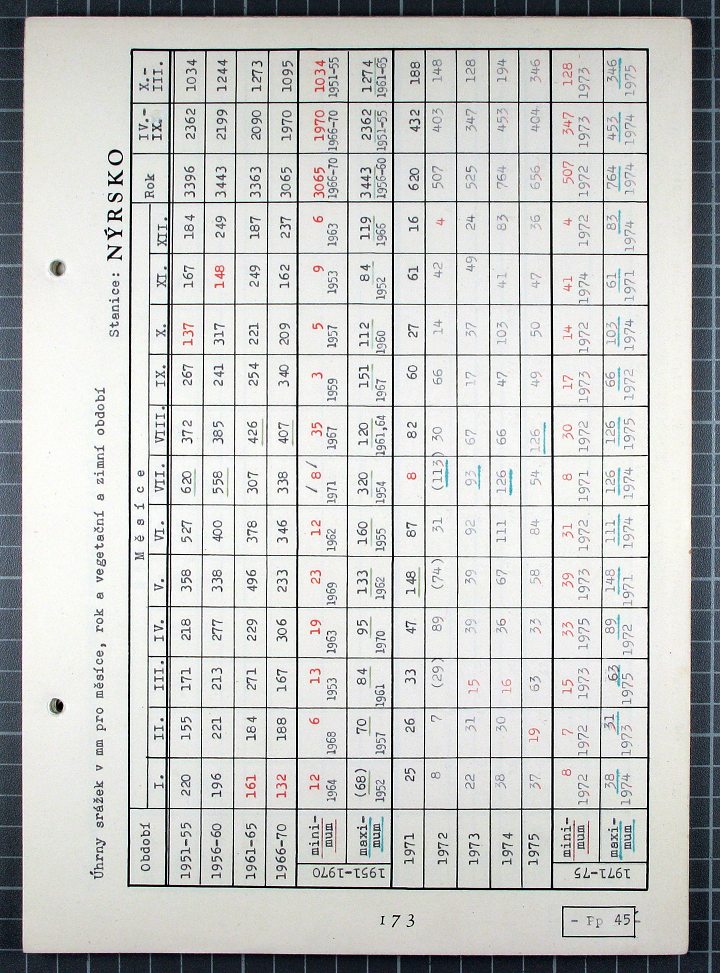 Úhrny srážek v mm pro měsíce, rok a vegetační a zimní období
Stanice: NÝRSKO
Období Měsíce Rok IV.-IX. X.-III.
I. II. III. IV. V. VI. VII. VIII. IX. X. XI. XII.
1951-55 220 155 171 218 358 527 620 372 267 137 167 184 3396 2362 1034
1956-60 196 221 213 277 338 400 558 385 241 317 148 249 3443 2199 1244
1961-65 161 184 271 229 496 378 307 426 254 221 249 187 3363 2090 1273
1966-70 132 188 167 306 233 346 338 407 340 209 162 237 3065 1970 1095
1951-1970
mini- 12 6 13 19 23 12 /8/ 35 3 5 9 6 3065 1970 1034
mum 1964 1968 1953 1963 1969 1962 1971 1967 1959 1957 1953 1963 1966-70 1966-70 1951-55
maxi- (68) 70 84 95 133 160 320 120 151 112 84 119 3443 2362 1274
mum 1952 1957 1961 1970 1962 1955 1954 1961,64 1967 1960 1952 1966 1956-60 1951-55 1961-65
1971 25 26 33 47 148 87 8 82 60 27 61 16 620 432 188
1972 8 7 (29) 89 (74) 31 (113) 30 66 14 42 4 507 403 148
1973 22 31 15 39 39 92 93 67 17 37 49 24 525 347 128
1974 38 30 16 36 67 111 126 66 47 103 41 83 764 453 194
1975 37 19 63 33 58 84 54 126 49 50 47 36 656 404 346
1971-75
mini- 8 7 15 33 39 31 8 30 17 14 41 4 507 347 128
mum 1972 1972 1973 1975 1973 1972 1971 1972 1973 1972 1974 1972 1972 1973 1973
maxi- 38 31 63 89 148 111 126 126 66 103 61 83 764 453 346
mum 1974 1973 1975 1972 1971 1974 1974 1975 1972 1974 1971 1974 1974 1974 1975
173
- Pp 45